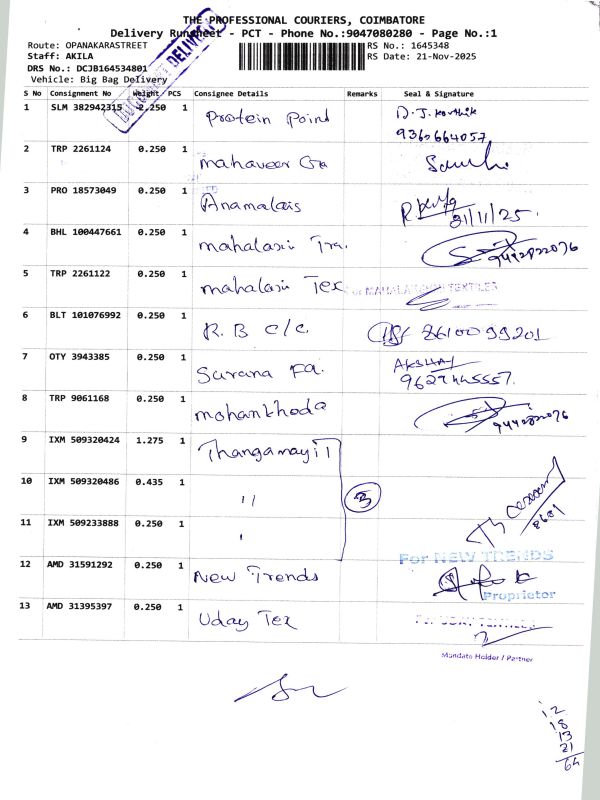 THE PROFESSIONAL COURIERS, COIMBATORE
Delivery Runsheet - PCT - Phone No.:9047080280 - Page No.:1
Route: OPANAKARASTREET
RS No.: 1645348
Staff: AKILA
RS Date: 21-Nov-2025
DRS No.: DCJB164534801
Vehicle: Big Bag Delivery
DOCUMENT DELIVERY
S No Consignment No Weight PCS Consignee Details Remarks Seal & Signature
1 SLM 382942315 2.250 1 Protein Point D.J. Karthik
9360664057
2 TRP 2261124 0.250 1 mahaveer
3 PRO 18573049 0.250 1 Anamalais 21/11/25.
4 BHL 100447661 0.250 1 mahalaxmi Tra.
5 TRP 2261122 0.250 1 mahalaxmi Tex For MAHALAKSHMI TEXTILES
6 BLT 101076992 0.250 1 R.B c/c 8610099201
7 OTY 3943385 0.250 1 Surana Fa. AKSHAY
8 TRP 9061168 0.250 1 mohankhoda
9 IXM 509320424 1.275 1 Thangamayil
10 IXM 509320486 0.435 1 " 3
11 IXM 509233888 0.250 1 "
For NEW TRENDS
12 AMD 31591292 0.250 1 New Trends
Proprietor
13 AMD 31395397 0.250 1 Uday Tex For UDAY TEXTILES
Mandate Holder / Partner
12
18
13
21
64